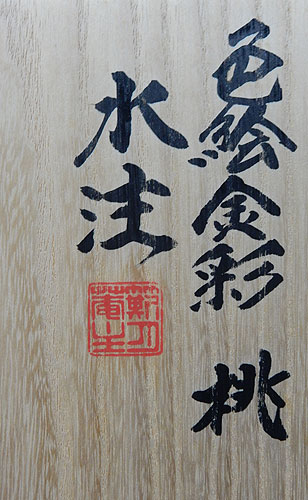 色絵金彩 桃
水注